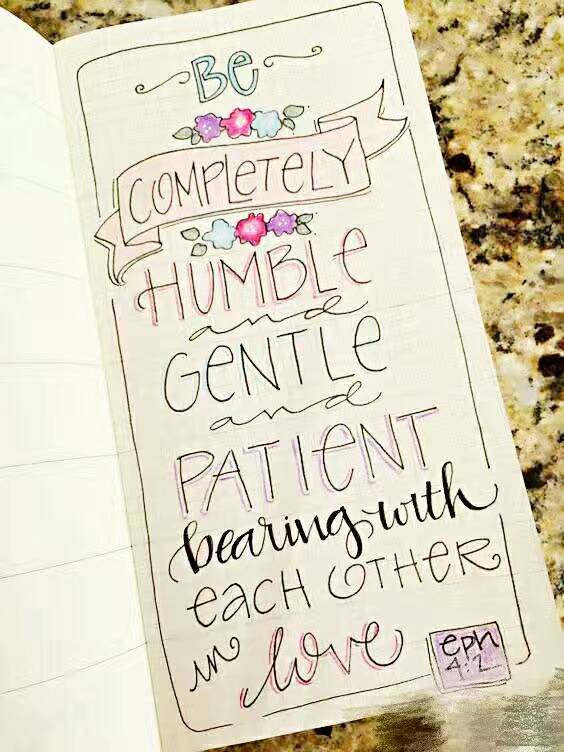 Be
COMPLeTeLY
HUMBLe
and
GeNTLe
and
PATIeNT
bearing with
eacH OTHeR
in love
eph
4:2